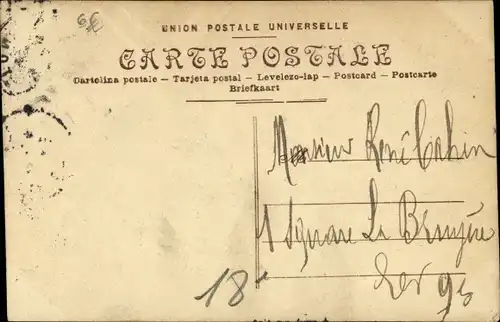 6€
UNION POSTALE UNIVERSELLE
CARTE POSTALE
Cartolina postale — Tarjeta postal — Levelezo-lap — Postcard — Postcarte
Briefkaart
Monsieur René Cahen
1 Square La Bruyère
18